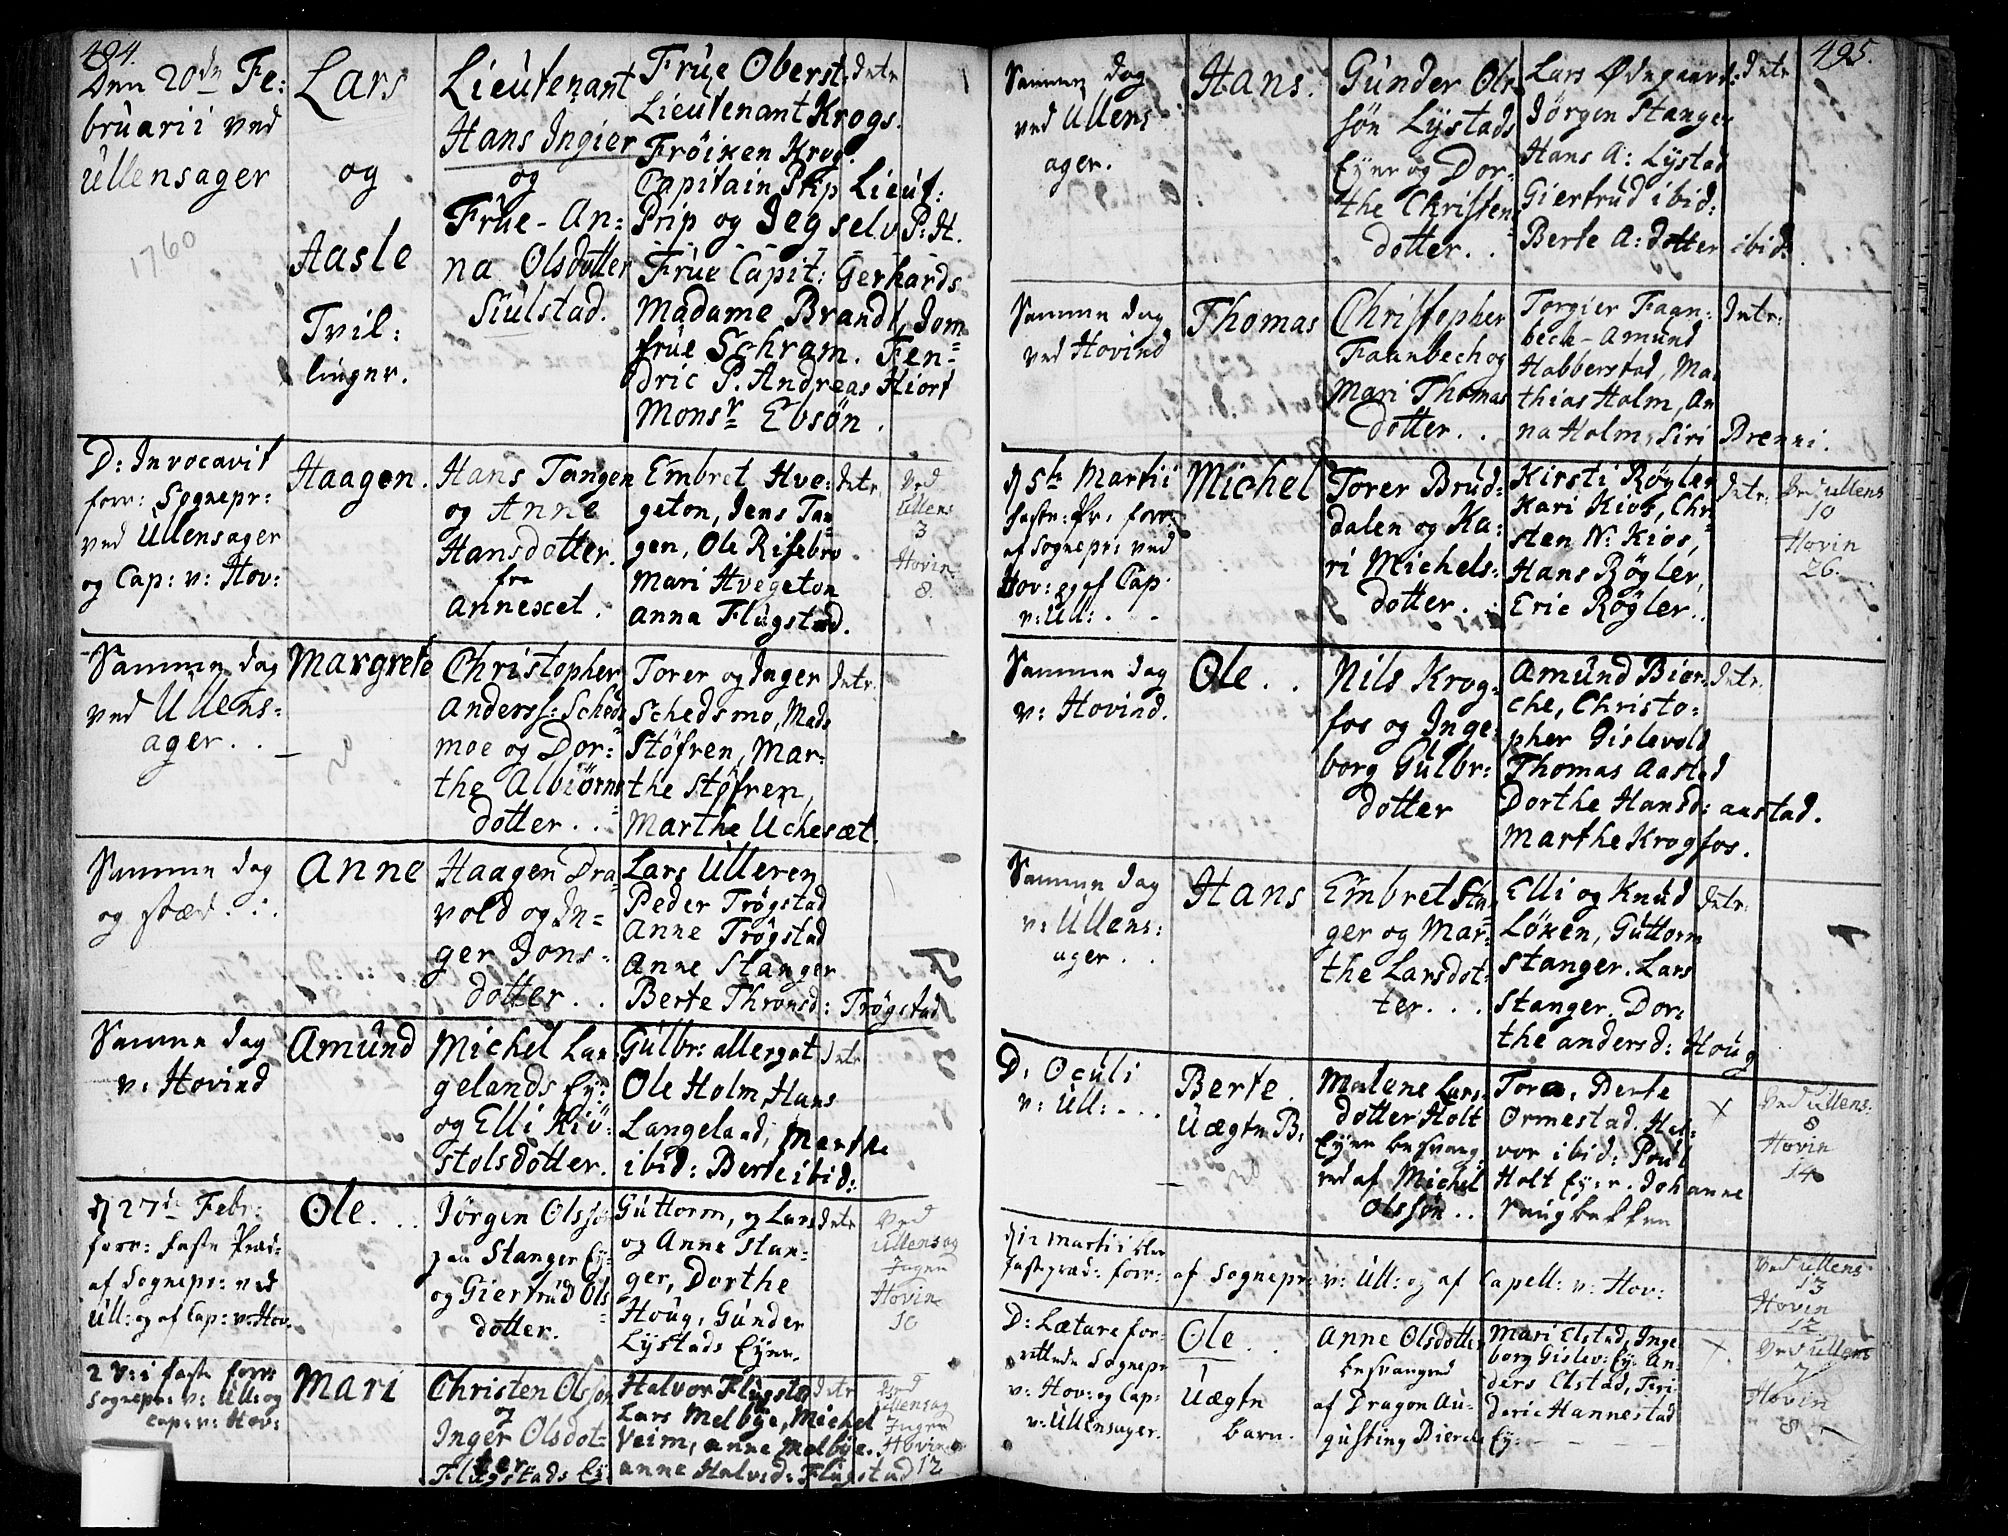 494.
Den 20de Fe:
bruarii ved
Ullensager
1760
Lars
og
Aasle
Tvil:
linger.
Lieutenant
Hans Ingier
og
Frue - An=
na Olsdotter
Siulstad.
Frue Oberst
Lieutenant Krogs.
Fröiken Krog.
Capitain Prip Lieut:
Prip og Jeg selv P: H.
Frue Capit: Gerhards
Madame Brandt, Jom=
frue Schram. Fen=
dric P. Andreas Hiort
Monsr Ebsön.
D: Invocavit
forr: Sognepr:
ved Ullensager
og Cap: v: Hov:
Haagen.
Hans Tangen
og Anne
Hansdotter.
fra
Annexet.
Embret Hve:
geton, Jens Tan=
gen, Ole Risebro
Mari Hvegeton
Anna Flugstad.
Intr.
Ved
Ullens
3
Hovin
8.
Samme dag
ved Ullens=
ager . .
Margrete
Christopher
Anderss: Scheds
moe og Dor=
the Albiörns
dotter . .
Torer og Inger
Schedsmo, Mads
Stöfren, Mar=
the Stöfren,
Marthe Uchesæt.
Intr.
Samme dag
og stæd . .
Anne
Haagen Dra=
vold og In=
ger Jons=
dotter . .
Lars Ulleren
Peder Trögstad
Anne Trögstad
Anne Stanger
Berte Thronsd: Trögstad
Samme dag
v: Hovind
Amund
Michel Lan
gelands Ey:
og Elli Kiö:
stolsdotter.
Gulbr: Allergot
Ole Holm, Hans
Langeland, Marthe
ibid: Berte ibid:
Intr
d 27de Febr:
forr: faste Præd:
af Sognepr: ved
Ull: og af Cap: v: Hov.
Ole . .
Jörgen Olssön
paa Stanger Ey:
og Giertrud Ols
dotter.
Guttorm, og Lars
og Anne Stan=
ger, Dorthe
Houg, Gunder
Lystads Eyer.
Intr
Ved
Ullensag
Ingen
Hovin
10
2 v: i faste forr:
Sognepr: v: Ull: og
Cap: v: Hov:
Mari
Christen Olsson
og
Inger Olsdot=
ter
Flugstads Ey
Halvor Flugstad
Lars Melbye, Michel
Veim, Anne Melbye.
Anne Halvsd: Flugstad
Intr
Ved
Ullensag
Ingen
Hovin
12
495.
Samme dag
ved Ullens
ager.
Hans.
Gunder Ols
sön Lystads
Eyer og Dor:
the Christens
dotter . .
Lars Ødegaard.
Jörgen Stanger
Hans A: Lystad
Giertrud ibid:
Berte A: dotter ibid:
Intr
Samme dag
ved Hovind
Thomas
Christopher
Faanbech og
Mari Thomas
dotter . .
Torgier Faan:
bech - Amund
Habberstad, Ma
thias Holm, An
na Holm, Siri Brenni.
Intr:
d 5te Martii
faste: Pr: forr:
af Sognepr: ved
Hov: og af Cap:
v: Ull: . -
Michel
Torer Brud=
dalen og Ka:
ri Michels:
dotter . .
Kirsti Røgler
Kari Kios, Chri
sten N: Kios,
Hans Røgler,
Eric Røgler.
Intr.
Ved Ullens
10
Hovin
26.
Samme dag
v: Hovind.
Ole . .
Nils Krog=
fos og Inge=
borg Gulbr:
dotter
Amund Bior=
che, Christo=
pher Gislevold
Thomas Aastad
Dorthe Hansd: Aastad.
Marthe Krogfos.
Intr.
Samme dag
v: Ullens:
ager . .
Hans
Embret Stan
ger og Mar=
the Larsdot=
ter . . .
Elli og Knud
Löken, Guttorm
Stanger. Lars
Stanger. Dor:
the Andersd: Houg
Intr:
D: Oculi
v: Ull: . . .
Berte.
Uægte B:
Malene Lars
dotter Holt
Eyer besvang:
red af Michel
Olssön . .
Tora, Berte
Ormestad. Hal=
vor ibid: Poul
Holt Eyer. Johanne
Haugbakken
x
Ved Ullens:
8
Hovin
14
d 12 Martii blev
fastepræd: forr: af Sognepr: v: Ull: og af Capell: v: Hov:
Ved Ullens
13
Hovin
12
D: Lætare for=
rettede Sognepr
v: Hov: og Cap:
v: Ullensager.
Ole . .
Uægte
barn.
Anne Olsdotter
besvangred
af Dragon Au=
gusting Bierche
Mari Elstad, Inge
borg Gislev: Ey: An=
ders Elstad, Fri=
deric Hannestad
Ey:
x.
Ved Ullens
7
Hovin
8